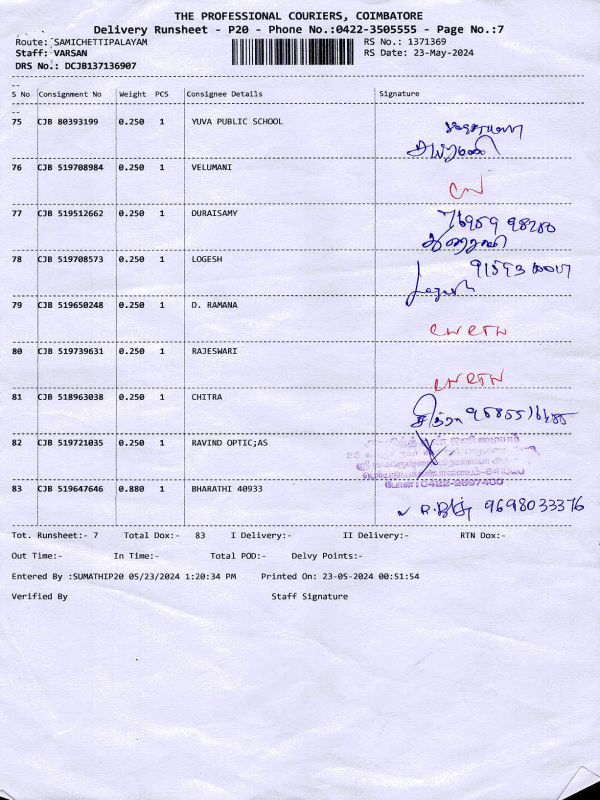 THE PROFESSIONAL COURIERS, COIMBATORE
Delivery Runsheet - P20 - Phone No.:0422-3505555 - Page No.:7
Route: SAMICHETTIPALAYAM RS No.: 1371369
Staff: VARSAN RS Date: 23-May-2024
DRS No.: DCJB137136907
S No Consignment No Weight PCS Consignee Details Signature
75 CJB 80393199 0.250 1 YUVA PUBLIC SCHOOL
76 CJB 519708984 0.250 1 VELUMANI
77 CJB 519512662 0.250 1 DURAISAMY
78 CJB 519708573 0.250 1 LOGESH
79 CJB 519650248 0.250 1 D. RAMANA CN RTN
80 CJB 519739631 0.250 1 RAJESWARI CN RTN
81 CJB 518963038 0.250 1 CHITRA சித்ரா
82 CJB 519721035 0.250 1 RAVIND OPTIC;AS
போன்: 0422-2697400
83 CJB 519647646 0.880 1 BHARATHI 40933 9698033376
Tot. Runsheet:- 7 Total Dox:- 83 I Delivery:- II Delivery:- RTN Dox:-
Out Time:- In Time:- Total POD:- Delvy Points:-
Entered By :SUMATHIP20 05/23/2024 1:20:34 PM Printed On: 23-05-2024 00:51:54
Verified By Staff Signature